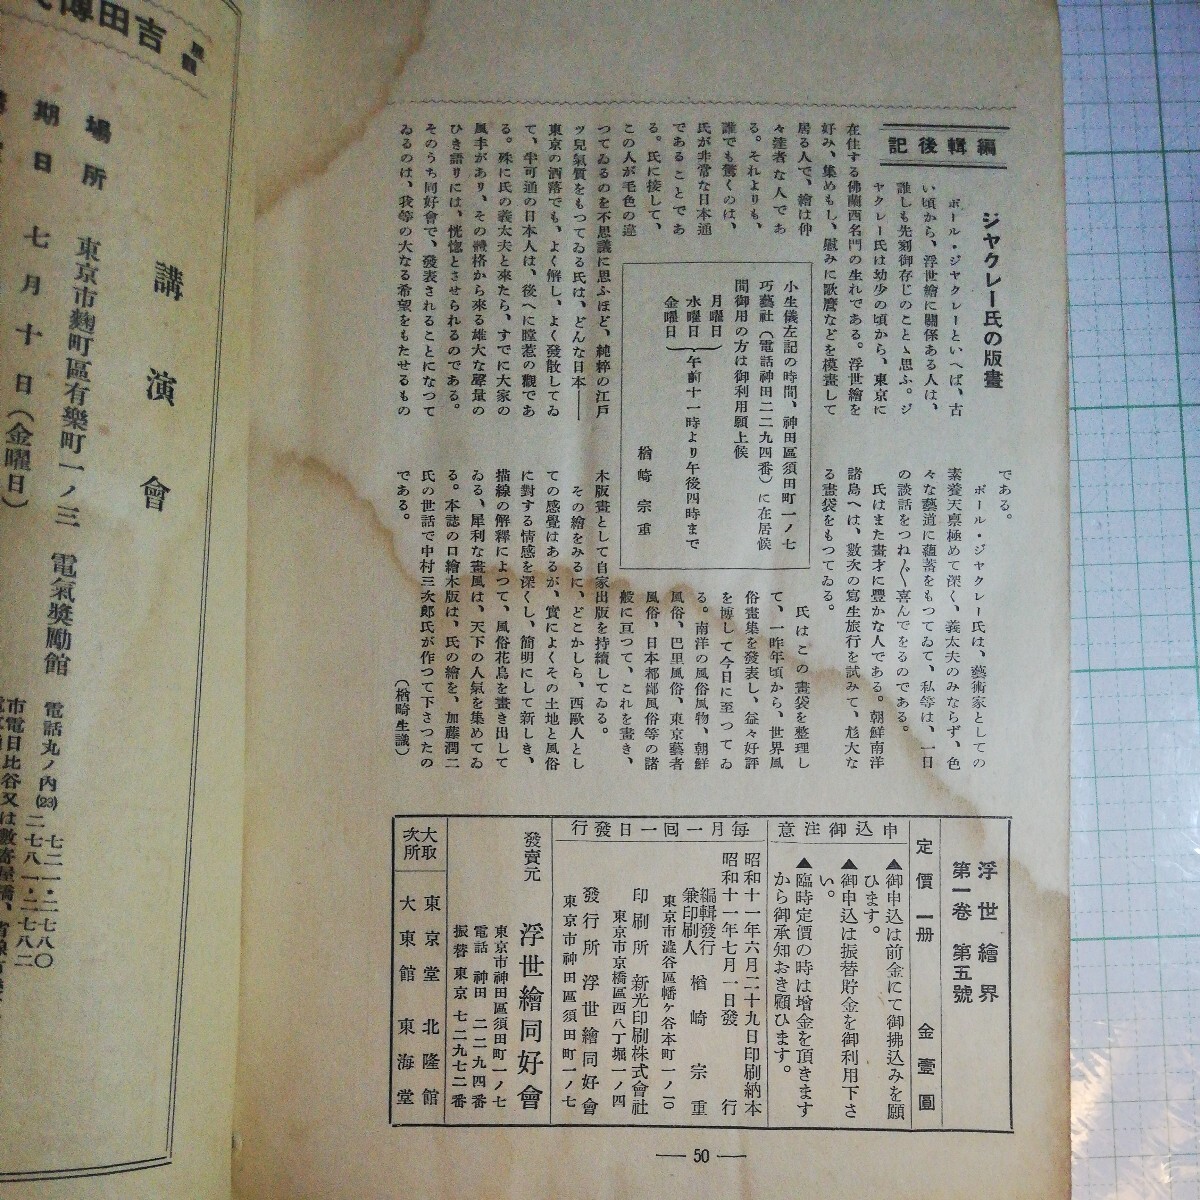 編輯後記
ジヤクレー氏の版畫
ポール・ジヤクレーといへば、古
い頃から、浮世繪に關係ある人は、
誰しも先刻御存じのことゝ思ふ。ジ
ヤクレー氏は幼少の頃から、東京に
在住する佛蘭西名門の生れである。浮世繪を
好み、集めもし、慰みに歌麿などを模畫して
居る人で、繪は仲
々達者な人であ
る。それよりも、
誰でも驚くのは、
氏が非常な日本通
であることであ
る。氏に接して、
この人が毛色の違
つてゐるのを不思議に思ふほど、純粹の江戸
ツ兒氣質をもつてゐる氏は、どんな日本——
東京の洒落でも、よく解し、よく發散してゐ
て、半可通の日本人は、後へに瞠惹の觀であ
る。殊に氏の義太夫と來たら、すでに大家の
風丰があり、その體格から來る雄大な聲量の
ひき語りには、恍惚とさせられるのである。
そのうち同好會で、發表されることになつて
ゐるのは、我等の大なる希望をもたせるもの
である。
ポール・ジヤクレー氏は、藝術家としての
素養天禀極めて深く、義太夫のみならず、色
々な藝道に蘊蓄をもつてゐて、私等は、一日
の談話をつね〴〵喜んでをるのである。
氏はまた畫才に豐かな人である。朝鮮南洋
諸島へは、數次の寫生旅行を試みて、尨大な
る畫袋をもつてゐる。
氏はこの畫袋を整理し
て、一昨年頃から、世界風
俗畫集を發表し、益々好評
を博して今日に至つてゐ
る。南洋の風俗風物、朝鮮
風俗、巴里風俗、東京藝者
風俗、日本都鄙風俗等の諸
般に亘つて、これを畫き、
木版畫として自家出版を持續してゐる。
その繪をみるに、どこかしら、西歐人とし
ての感覺はあるが、實によくその土地と風俗
に對する情感を深くし、簡明にして新しき、
描線の解釋によつて、風俗花鳥を畫き出して
ゐる、犀利な畫風は、天下の人氣を集めてゐ
る。本誌の口繪木版は、氏の繪を、加藤潤二
氏の世話で中村三次郎氏が作つて下さつたの
である。
（楢崎生識）
小生儀左記の時間、神田區須田町一ノ七
巧藝社（電話神田二二九四番）に在居候
間御用の方は御利用願上候
月曜日
水曜日
金曜日
午前十一時より午後四時まで
楢崎宗重
浮世繪界
第一卷 第五號
定價一册 金壹圓
申込御注意
▲御申込は前金にて御拂込みを願
ひます。
▲御申込は振替貯金を御利用下さ
い。
▲臨時定價の時は増金を頂きます
から御承知おき願ひます。
毎月一回一日發行
昭和十一年六月二十九日印刷納本
昭和十一年七月一日發行
編輯發行
兼印刷人 楢崎宗重
東京市澁谷區幡ヶ谷本町一ノ一〇
印刷所 新光印刷株式會社
東京市京橋區西八丁堀一ノ四
發行所 浮世繪同好會
東京市神田區須田町一ノ七
發賣元 浮世繪同好會
東京市神田區須田町一ノ七
電話神田二二九四番
振替東京七二九七二番
大取次所
東京堂 北隆館
大東館 東海堂
— 50 —
吉田博
講演會
場所 東京市麴町區有樂町一ノ三 電氣奬勵館
電話丸ノ內(23)二七八一・二七八二
期日 七月十日（金曜日）